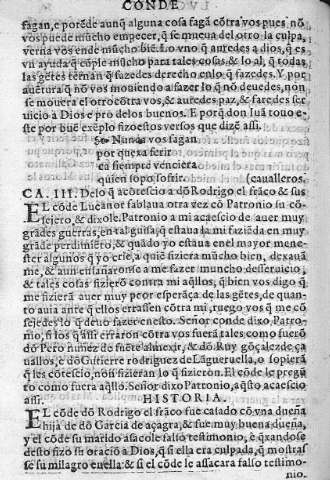 CONDE
fagan, e porẽde aunq̃ alguna cosa fagã cõtra vos pues nõ
vos puede mũcho empecer, q̃ se mueua del otro la culpa,
verna vos ende mũcho biẽ. Lo vno q̃ antedes a dios, q̃ es
vn ayuda q̃ cũple mucho para tales cosas, & lo al, q̃ todas
las gẽtes ternan q̃ fazedes derecho enlo q̃ fazedes. Y por
auẽtura q̃ nõ vos mouiendo a fazer lo q̃ nõ deuedes, non
se mouera el otro cõtra vos, & auredes paz, & faredes ser
uicio a Dios e pro delos buenos. E porq̃ don Iuã touo e
ste por buẽ exẽplo fizo estos versos que dizẽ assi.
Nunca vos fagan
por quexa ferir
ca siempre venciera
quien sopo sofrir.
(caualleros.
CA. III. Delo q̃ acõtescio a dõ Rodrigo el frãco & sus
EL cõde Lucanor fablaua otra vez cõ Patronio su cõ
sejero, & dixole. Patronio a mi acaescio de auer muy
grãdes guerras, en tal guisa, q̃ estaua la mi faziẽda en muy
grãde perdimiẽto, & quãdo yo estaua en el mayor menes
ter algunos q̃ yo crie, a quiẽ fiziera mũcho bien, dexauã
me, & aun enseñaronse a me fazer muncho desseruicio,
& tales cosas fizierõ contra mi aq̃llos, q̃ bien vos digo q̃
me fizierã auer muy peor esperãça de las gẽtes, de quan
to auia ante q̃ ellos errassen cõtra mi, ruego vos q̃ me cõ
sejedes lo q̃ deuo fazer en esto. Señor conde dixo Patro-
nio, si los q̃ assi erraron cõtra vos fuerã tales como fuerõ
dõ Pero nuñez de fuẽte almexir, & dõ Ruy gõçalez de ça
uallos, e dõ Gutierre rodriguez de Lãgueruella, o sopierã
q̃ les cõtescio, nõ fizieran lo q̃ fizieron. El cõde le pregũ
to como fuera aq̃llo. Señor dixo Patronio, aq̃sto acaescio
assi.
HISTORIA.
EL cõde dõ Rodrigo el frãco fue casado cõ vna dueña
hija de dõ Garcia de açagra, & fue muy buena dueña,
y el cõde su marido asacole falso testimonio, e quexandose
desto fizo su oraciõ a Dios, q̃ si ella era culpada, q̃ mostras
se su milagro en ella: & si el cõde le assacara falso testimo-
nio.